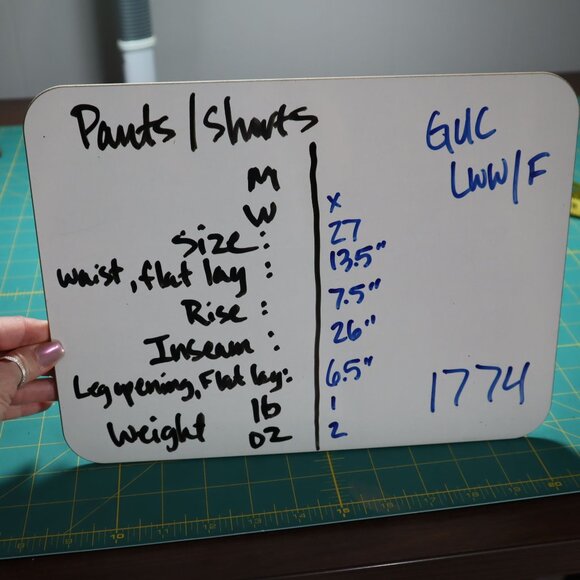 Pants/Shorts
GUC
LWW/F
M
W x
Size: 27
Waist, flat lay: 13.5"
Rise: 7.5"
Inseam: 26"
Leg opening, Flat lay: 6.5"
lb 1
Weight oz 2
1774